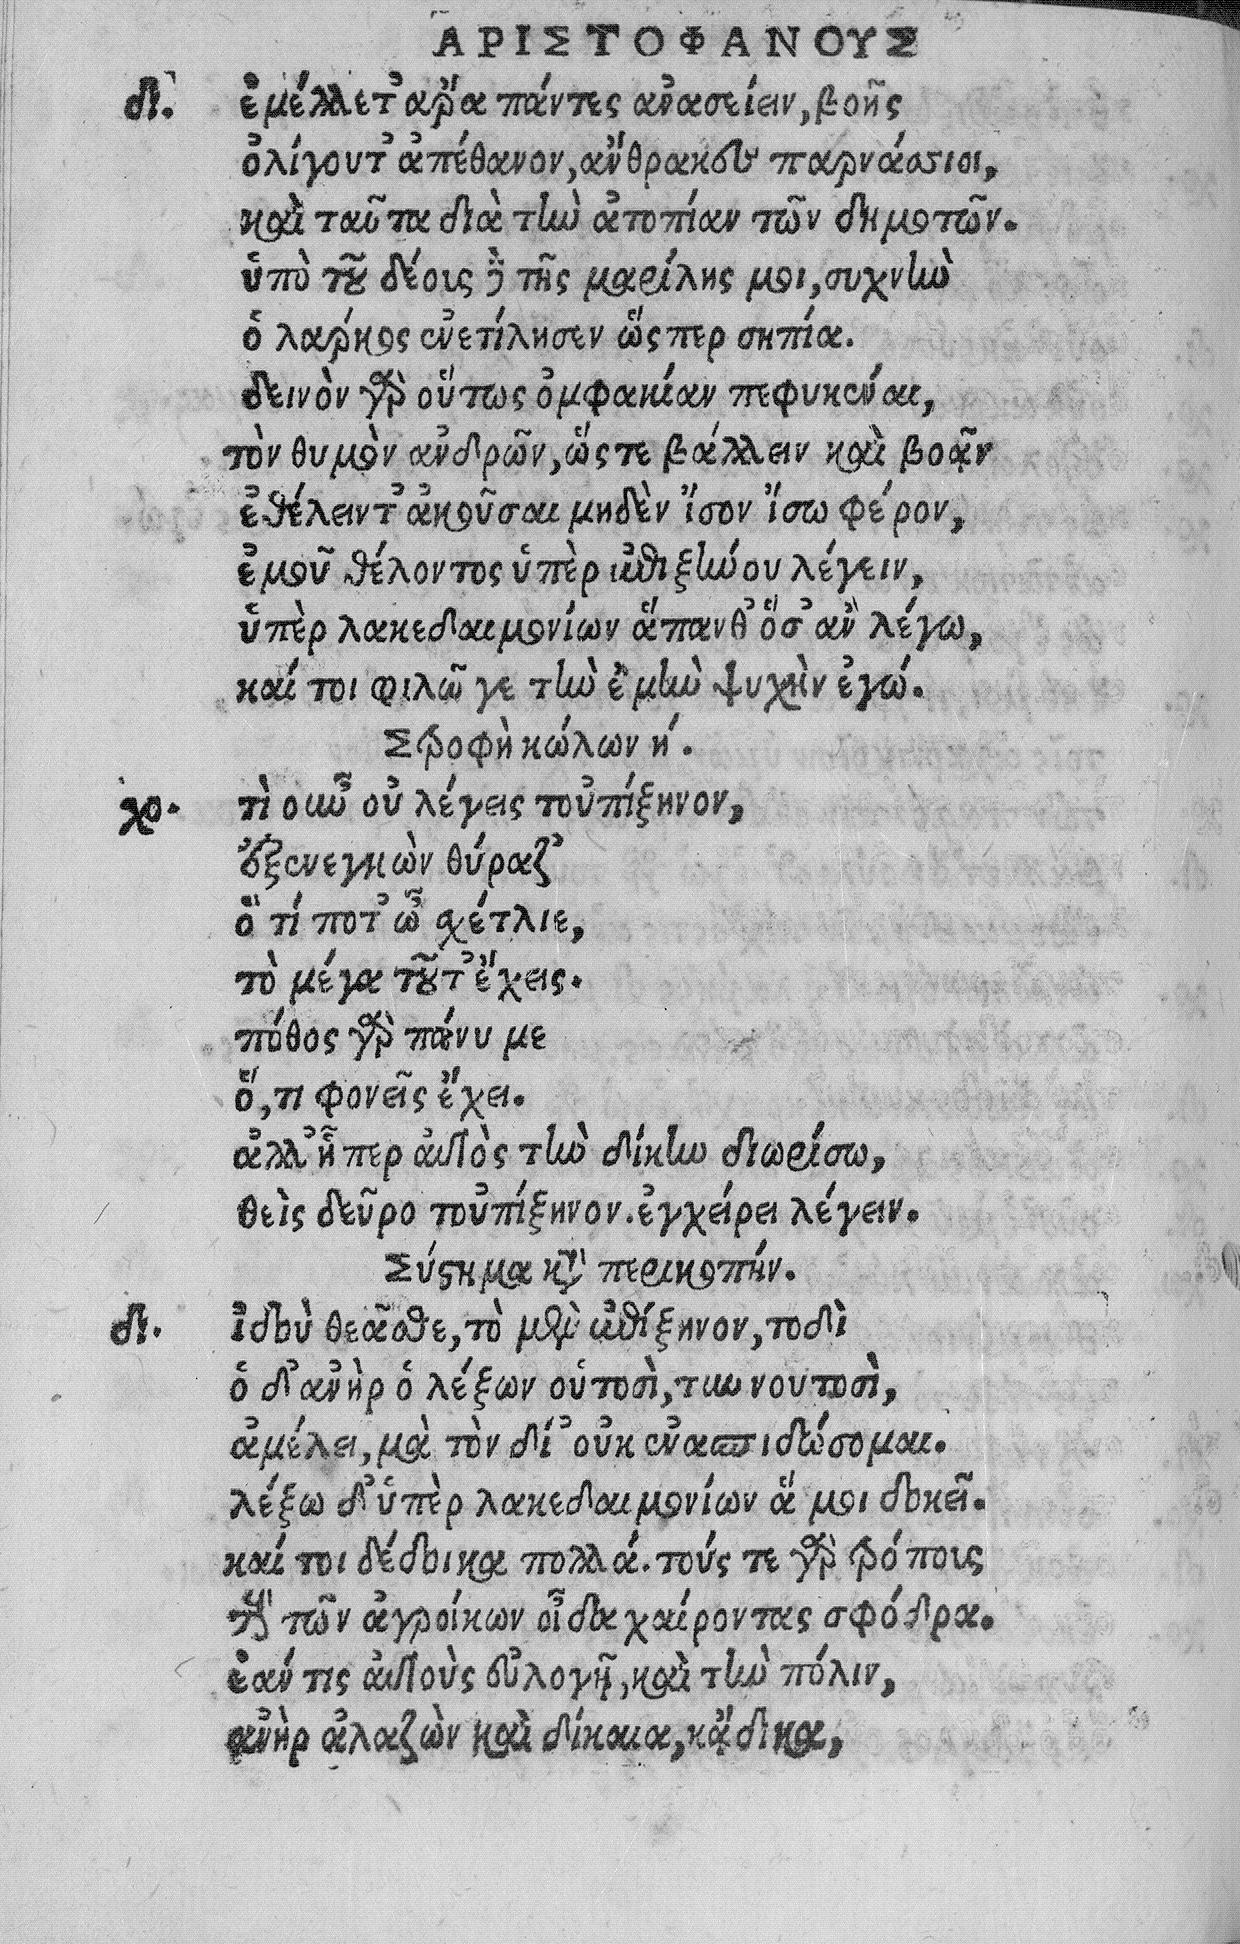 ΑΡΙΣΤΟΦΑΝΟΥΣ
δι. ἐμέλλετ' ἄρα πάντες ἀνασείειν, βοῆς
ὀλίγουτ' ἀπέθανον, ἄνθρακες παρνάσιοι,
καὶ ταῦτα διὰ τὴν ἀτοπίαν τῶν δημοτῶν.
ὑπὸ τοῦ δέους δὲ τῆς μαρίλης μοι, συχνὴν
ὁ λάρκος ἐνετίλησεν ὥςπερ σηπία.
δεινὸν γὰρ οὕτως ὀμφακίαν πεφυκέναι,
τὸν θυμὸν ἀνδρῶν, ὥςτε βάλλειν καὶ βοᾷν
ἐθέλειντ' ἀκοῦσαι μηδὲν ἴσον ἴσω φέρον,
ἐμοῦ θέλοντος ὑπὲρ ἐπιξήνου λέγειν,
ὑπὲρ λακεδαιμονίων ἅπανθ' ὅσ' ἂν λέγω,
καί τοι φιλῶ γε τὴν ἐμὴν ψυχὴν ἐγώ.
Στροφὴ κώλων η'.
χο. τὶ οὖν οὐ λέγεις τοὐπίξηνον,
ἐξενεγκὼν θύραζ'
ὅ τί ποτ' ὦ σχέτλιε,
τὸ μέγα τοῦτ' ἔχεις.
πόθος γὰρ πάνυ με
ὅ, τι φονεῖς ἔχει.
ἀλλ' ᾗπερ αὐτὸς τὴν δίκην διωρίσω,
θεὶς δεῦρο τοὐπίξηνον. ἐγχείρει λέγειν.
Σύστημα κατὰ περικοπήν.
δι. ἰδοὺ θεᾶσθε, τὸ μὲν ἐπίξηνον, τοδὶ
ὁ δ' ἀνὴρ ὁ λέξων οὑτοσὶ, τυννουτοσὶ,
ἀμέλει, μὰ τὸν δί' οὐκ ἐνασπιδώσομαι.
λέξω δ' ὑπὲρ λακεδαιμονίων ἅ μοι δοκεῖ.
καί τοι δέδοικα πολλά. τούς τε γὰρ τρόπους
τοὺς τῶν ἀγροίκων οἶδα χαίροντας σφόδρα.
ἐάν τις αὐτοὺς εὐλογῇ, καὶ τὴν πόλιν,
ἀνὴρ ἀλαζὼν καὶ δίκαια, κἄδικα,